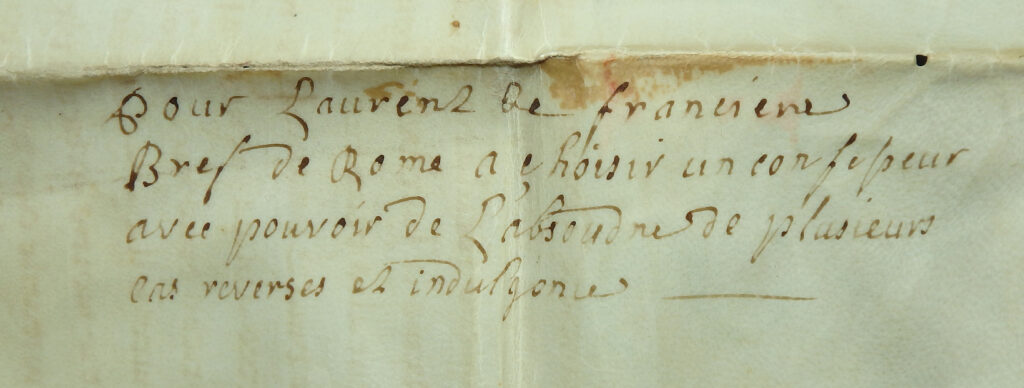 Pour Laurent de franciere
Bref de Rome a choisir un confesseur
avec pouvoir de L'absoudre de plusieurs
cas reverses et indulgence